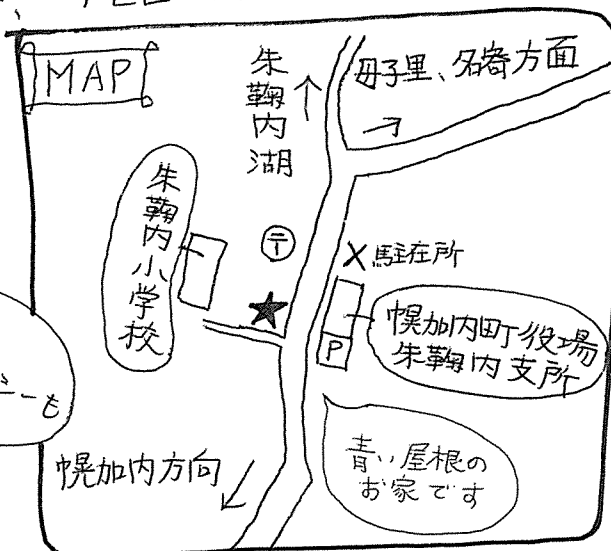 MAP
朱鞠内湖
母子里、名寄方面
朱鞠内小学校
〒
X 駐在所
幌加内町役場
朱鞠内支所
P
幌加内方向
青い屋根の
お家です